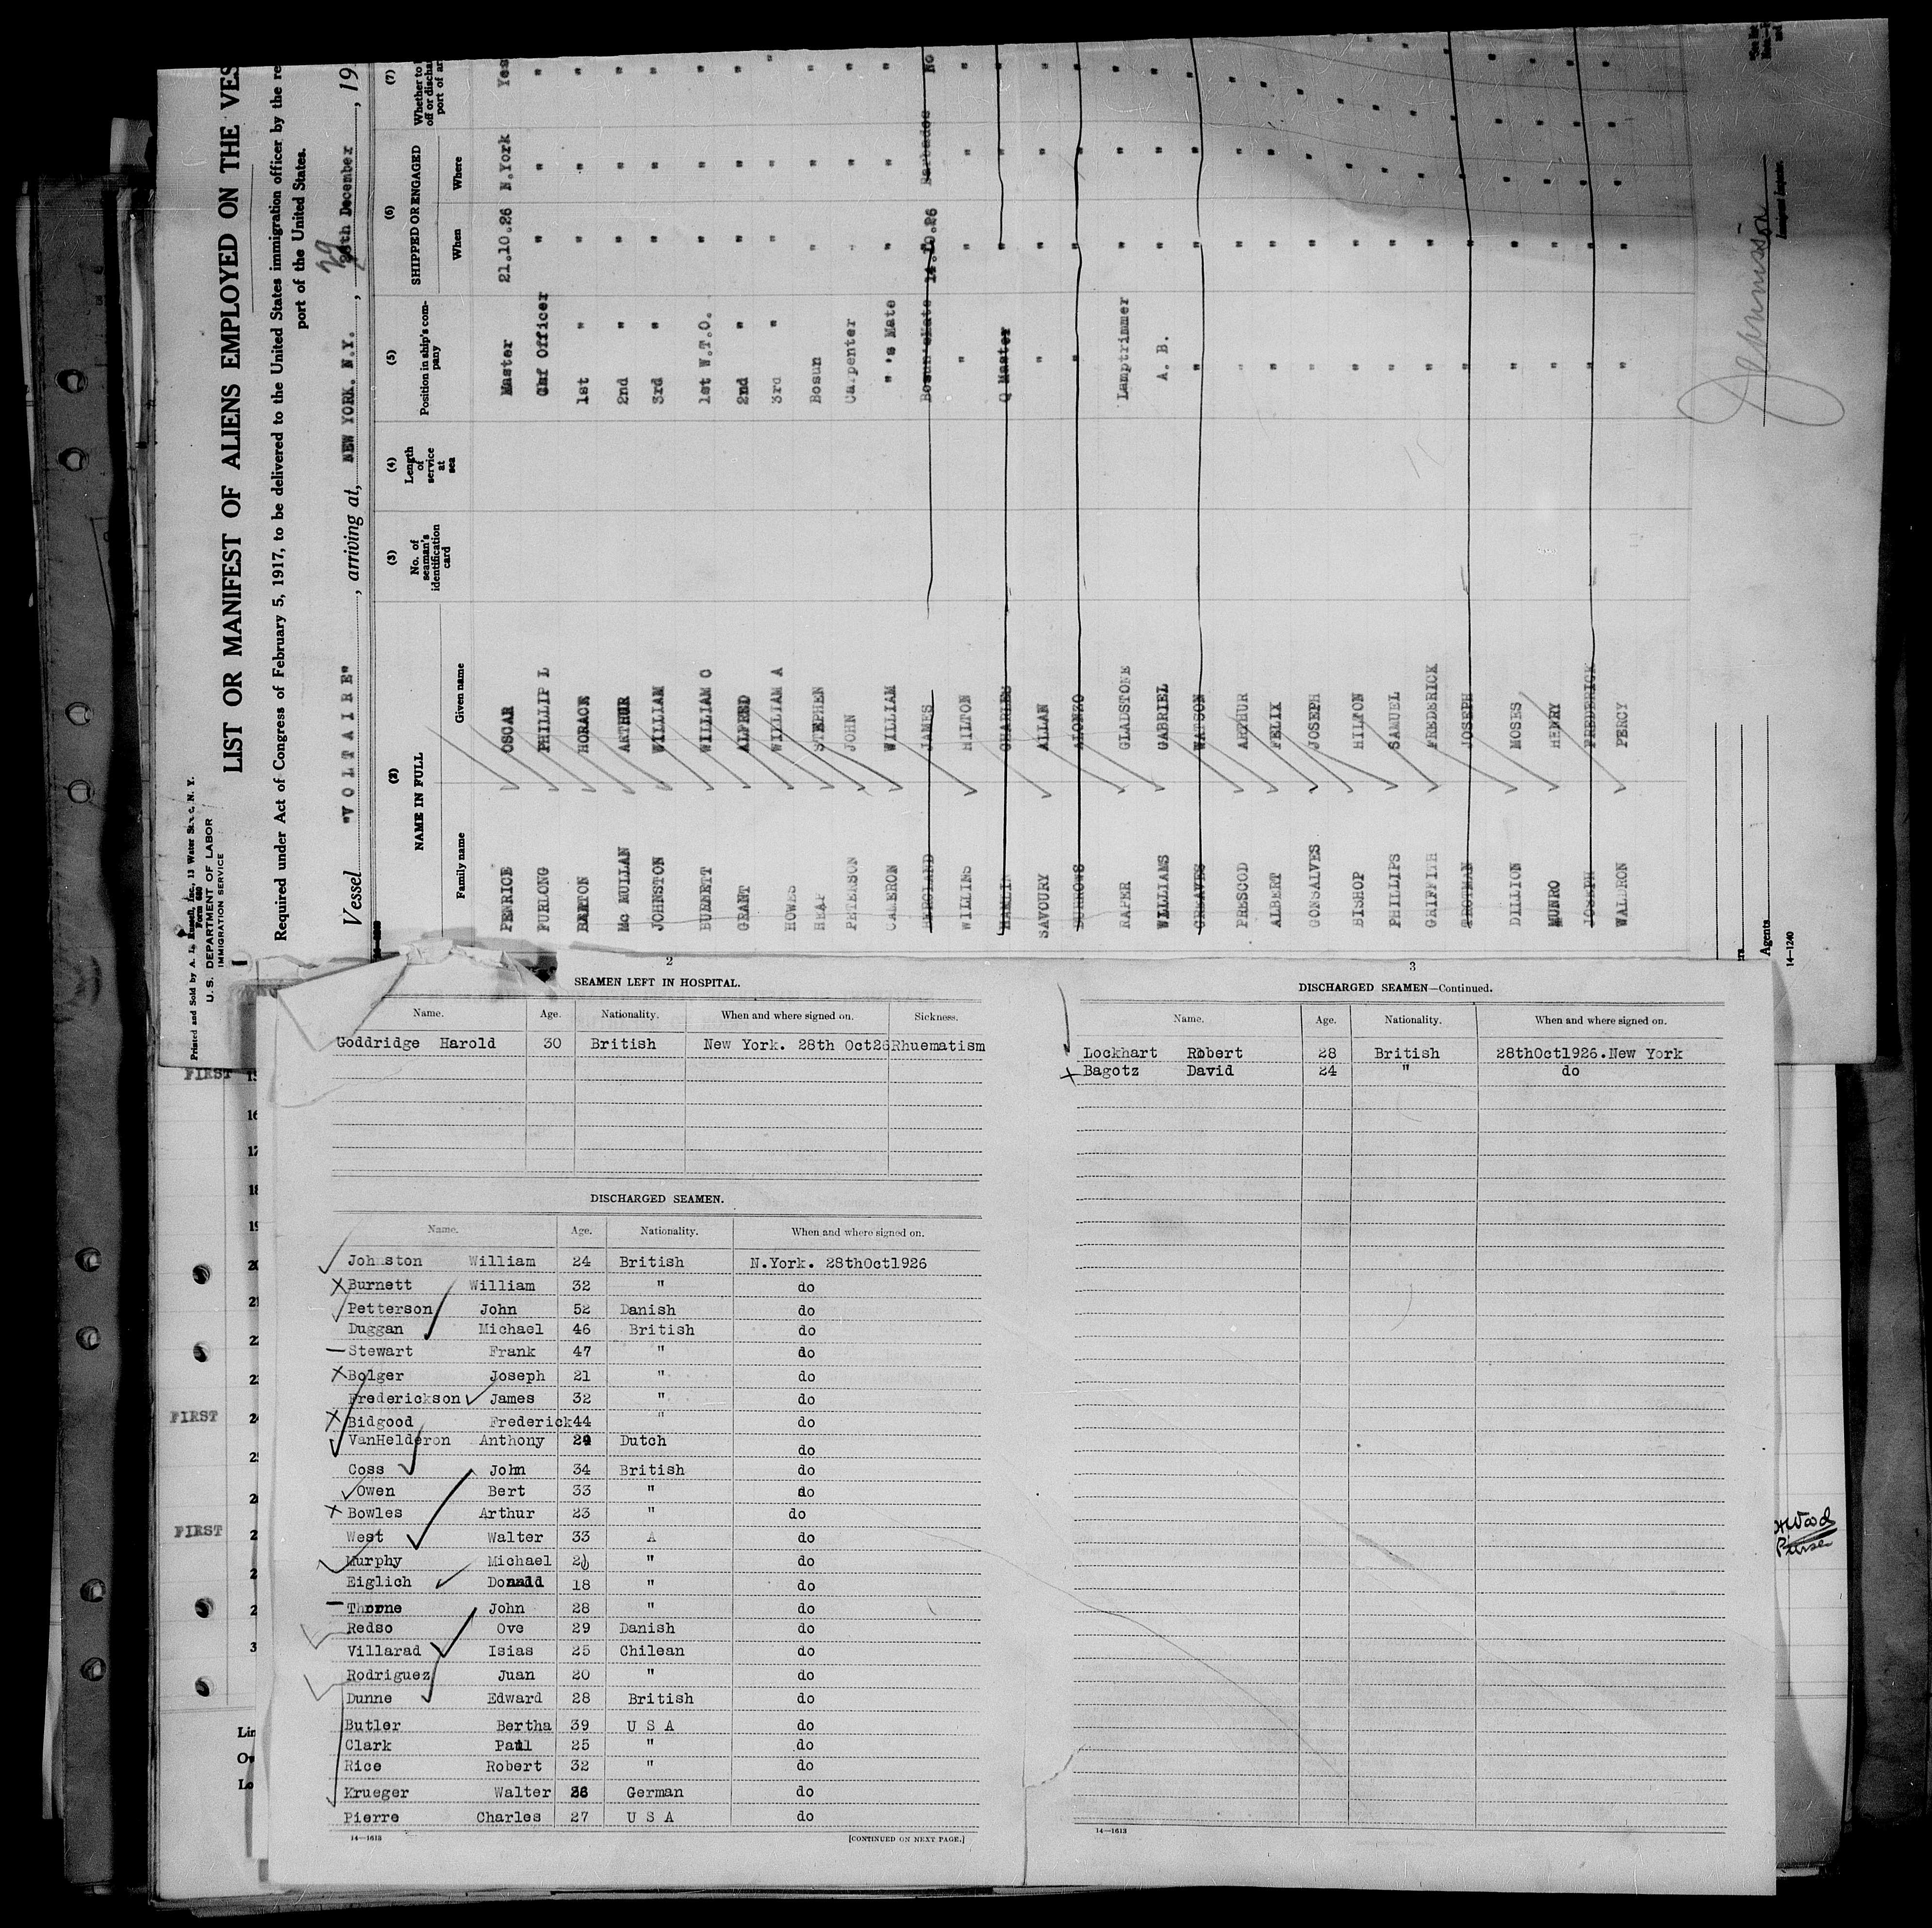 Printed and Sold by A. L. Russell, Inc., 13 Water St., N. Y.
Form 680
U. S. DEPARTMENT OF LABOR
IMMIGRATION SERVICE
LIST OR MANIFEST OF ALIENS EMPLOYED ON THE VES
Required under Act of Congress of February 5, 1917, to be delivered to the United States immigration officer by the re
port of the United States.
Vessel "VOLTAIRE", arriving at, NEW YORK. N.Y., 29 28th December, 19
(2) (3) (4) (5) (6) (7)
NAME IN FULL No. of seaman's identification card Length of service at sea Position in ship's company SHIPPED OR ENGAGED Whether to off or discha port of ar
Family name Given name When Where
PENRICE OSCAR Master 21.10.26 N.York Yes
FURLONG PHILLIP L Chf Officer " " "
BARTON HORACE 1st " " " "
Mc MULLAN ARTHUR 2nd " " " "
JOHNSTON WILLIAM 3rd " " " "
BURNETT WILLIAM C 1st W.T.O. " " "
GRANT ALFRED 2nd " " " "
HOWES WILLIAM A 3rd " " " "
HEAP STEPHEN Bosun " " "
PETERSON JOHN Carpenter " " "
CALERON WILLIAM " 's Mate " " "
BERGLAND JAMES Bosun's Mate 14.10.26 Barbados No
WILLINS HILTON " " " "
HAMLIN CHARLES Q Master " " "
SAVOURY ALLAN " " " "
BURROWS ALONZO " " " "
RAPER GLADSTONE Lamptrimmer " " "
WILLIAMS GABRIEL A. B. " " "
GREAVES WATSON " " " "
PRESCOD ARTHUR " " " "
ALBERT FELIX " " " "
GONSALVES JOSEPH " " " "
BISHOP HILTON " " " "
PHILLIPS SAMUEL " " " "
GRIFFITH FREDERICK " " " "
TROTMAN JOSEPH " " " "
DILLION MOSES " " " "
MUNRO HENRY " " " "
JOSEPH FREDERICK " " " "
WALDRON PERCY " " " "
Immigrant Inspector.
Agents
14—1240
2
SEAMEN LEFT IN HOSPITAL.
Name. Age. Nationality. When and where signed on. Sickness.
Goddridge Harold 30 British New York. 28th Oct26 Rhuematism
DISCHARGED SEAMEN.
Name. Age. Nationality. When and where signed on.
Johnston William 24 British N.York. 28thOct1926
Burnett William 32 " do
Petterson John 52 Danish do
Duggan Michael 46 British do
Stewart Frank 47 " do
Bolger Joseph 21 " do
Frederickson James 32 " do
Bidgood Frederick 44 " do
VanHelderon Anthony 29 Dutch do
Coss John 34 British do
Owen Bert 33 " do
Bowles Arthur 23 " do
West Walter 33 A do
Murphy Michael " do
Eiglich Donald 18 " do
Thorne John 28 " do
Redso Ove 29 Danish do
Villarad Isias 25 Chilean do
Rodriguez Juan 20 " do
Dunne Edward 28 British do
Butler Bertha 39 U S A do
Clark Paul 25 " do
Rice Robert 32 " do
Krueger Walter German do
Pierre Charles 27 U S A do
14—1613
[CONTINUED ON NEXT PAGE.]
3
DISCHARGED SEAMEN—Continued.
Name. Age. Nationality. When and where signed on.
Lockhart Robert 28 British 28thOct1926.New York
Bagotz David 24 " do
14—1613
FIRST
16
17
18
19
20
21
22
FIRST
FIRST
Lin
Ow
Lo
Wood
Purser